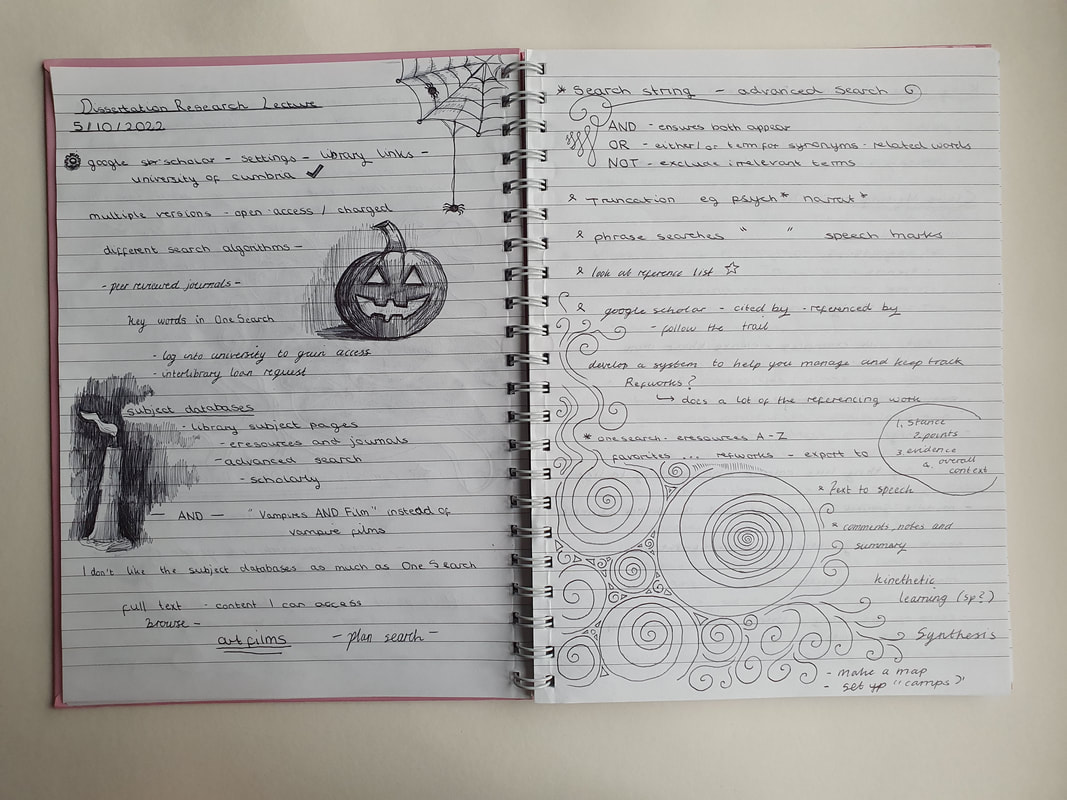 Dissertation Research Lecture
5/10/2022
google scholar - settings - library links -
university of cumbria ✓
multiple versions - open access / charged
different search algorithms -
- peer reviewed journals -
key words in One Search
- log into university to gain access
- interlibrary loan request
subject databases
- library subject pages
- eresources and journals
- advanced search
- scholarly
— AND — "Vampires AND Film" instead of
vampire films
I don't like the subject databases as much as One Search
full text - content I can access
Browse -
art films - plan search -
* Search string - advanced search
AND - ensures both appear
OR - either/or term for synonyms - related words
NOT - exclude irrelevant terms
Truncation eg psych* narrat*
phrase searches " " speech marks
look at reference list ☆
google scholar - cited by - referenced by
- follow the trail
develop a system to help you manage and keep track
Refworks?
↳ does a lot of the referencing work
* onesearch - eresources A-Z
favorites ... refworks - export to
1. Stance
2. points
3. evidence
4. overall
context
Text to speech
* comments, notes and
summary
kinethetic
learning (sp?)
Synthesis
- make a map
- set up "camps"